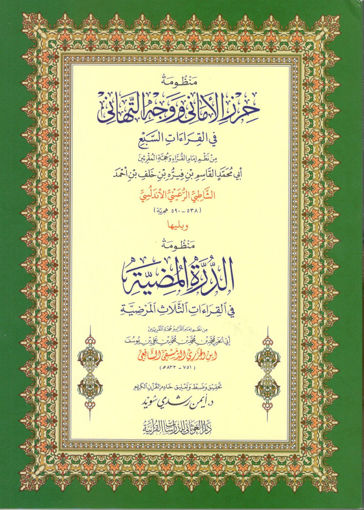 منظومة
حرز الأماني ووجه التهاني
في القراءات السبع
من نظم إمام القراء وحجة المقرئين
أبي محمد القاسم بن فيره بن خلف بن أحمد
الشاطبي الرعيني الأندلسي
(٥٣٨ - ٥٩٠ هجرية)
ويليها
منظومة
الدرة المضية
في القراءات الثلاث المرضية
أبي الخير محمد بن محمد بن محمد بن علي بن يوسف
ابن الجزري الدمشقي الشافعي
(٧٥١ - ٨٣٣ھ)
تحقيق وضبط وتعليق خادم القرآن الكريم
د. أيمن رشدي سويد
دار الغوثاني للدراسات القرآنية